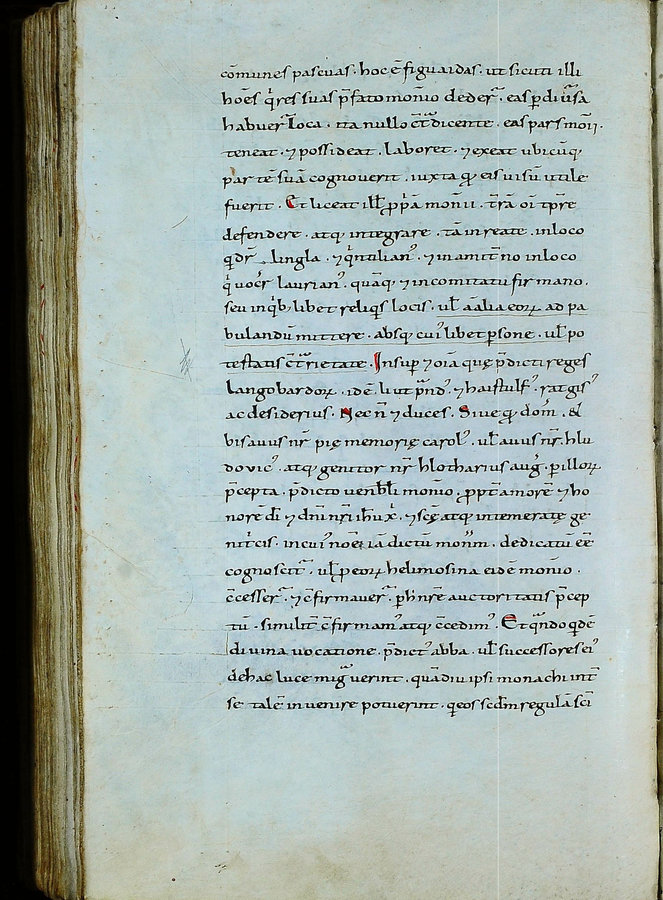 cōmunes pascuas · hoc ē figuaidas · ut sicuti illi
hoēs q̇ res suas p̄fato monīo deder̄ · eas p̱ diūsa
habuer̄ loca · ita nullo c̄tᵃdicente · eas pars moñ ·
teneat · ⁊ possideat · laboret · ⁊ exeat ubicūq;
partē suā cognoverit · iuxta qđ eis uisū utile
fuerit · Et liceat
defendere · atq; integrare · tā in reate · in loco
lingla · ⁊ q̇ntilian᾽ · ⁊ in amit̄no in loco
q̇ uocr̄ laurian᾽ · quāq; ⁊ in comitatu firmano ·
seu in q̇b; libet reliq̇s locis · ul̄ aīalia eoꝝ ad pa
bulandū mittere · absq; cui᾽libet p̱sone · ul̄ po
testatis c̄tᵃrietate · Insup̱ ⁊ oīa quę p̄dicti reges
langobardoꝝ · idē liutp̄nd᾽ · ⁊ haistulf᾽ · ratgis᾽
ac desiderius · Nec n̄ ⁊ duces · Siue
bisauus nr̄ pię memorię carol᾽ · ul̄ auus nr̄ hlu
douic᾽ · atq; genitor nr̄ hlotharius auḡ · p̱ illoꝝ
p̄cepta · p̄dicto uenb̄li monīo · ꝓpt̄ amorē ⁊ ho
norē dī ⁊ dn̄i nr̄i ihū xp̄i · ⁊ scę̄ atq; intemeratę ge
nit̄cis · in cui᾽ noē iā dictū mon̄m · dedicatū eē
cognoscit̄ · ul̄ ꝓ eoꝝ helimosina eidē monīo ·
c̄cesser̄ · ⁊ c̄firmauer̄ · p̱ hn̄c n̄re auctoritatis p̄cep
tū · similit̄ c̄firmam᾽ atq; c̄cedim᾽ · Et qᵃndo q̇dē
diuina uocatione · p̄dict᾽ abba · ul̄ successores ei᾽
de hac luce migᵃuerint · quādiu ipsi monachi int̄
se talē inuenire potuerint · q̇ eos scd̄m regulā scī